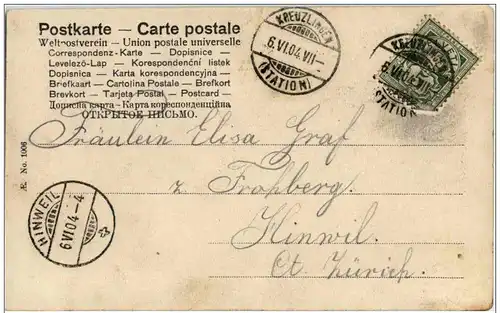 Postkarte — Carte postale
Weltpostverein – Union postale universelle
Correspondenz-Karte — Dopisnice —
Levelező-Lap — Korespondenční lístek
Dopisnica — Karta korespondencyjna —
Briefkaart — Cartolina Postale — Brefkort
Brevkort — Tarjeta Postal — Postcard —
Дописна карта - Карта кореспонденційна
ОТКРЫТОЕ ПИСЬМО.
KREUZLINGEN
6.VI.04.VII
(STATION)
KREUZLINGEN
6.VI.04.VII
(STATION)
Fräulein Elisa Graf
z. Frohberg.
Hinwil.
Ct. Zürich.
HINWEIL
6 VI 04 - 4
Æ. No. 1006